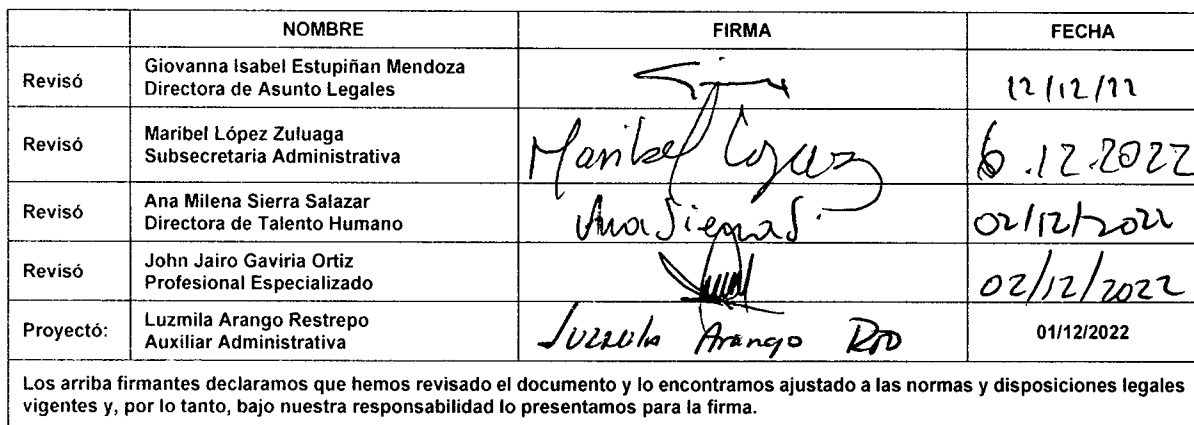 NOMBRE FIRMA FECHA
Revisó Giovanna Isabel Estupiñan Mendoza
Directora de Asunto Legales 12/12/22
Revisó Maribel López Zuluaga
Subsecretaria Administrativa Maribel López 6.12.2022
Revisó Ana Milena Sierra Salazar
Directora de Talento Humano Ana Sierra S. 02/12/2022
Revisó John Jairo Gaviria Ortiz
Profesional Especializado 02/12/2022
Proyectó: Luzmila Arango Restrepo
Auxiliar Administrativa Luzmila Arango Rpo 01/12/2022
Los arriba firmantes declaramos que hemos revisado el documento y lo encontramos ajustado a las normas y disposiciones legales
vigentes y, por lo tanto, bajo nuestra responsabilidad lo presentamos para la firma.